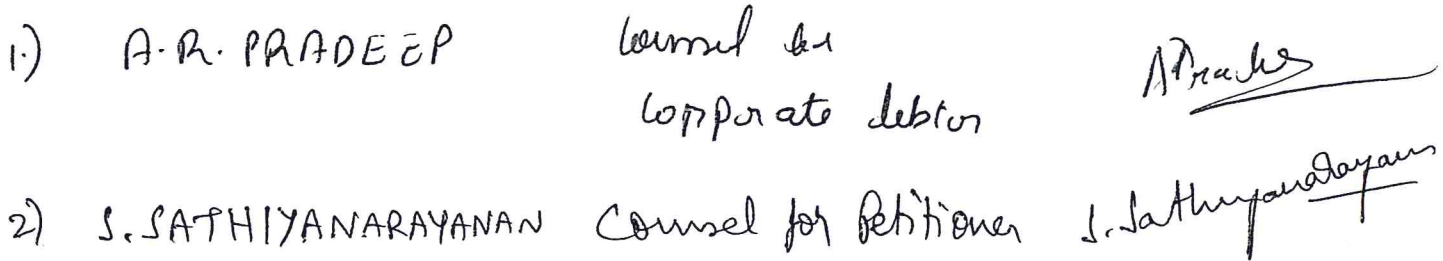 1.) A.R. PRADEEP Counsel for
Corporate debtor
2) S. SATHIYANARAYANAN Counsel for Petitioner S. Sathiyanarayanan